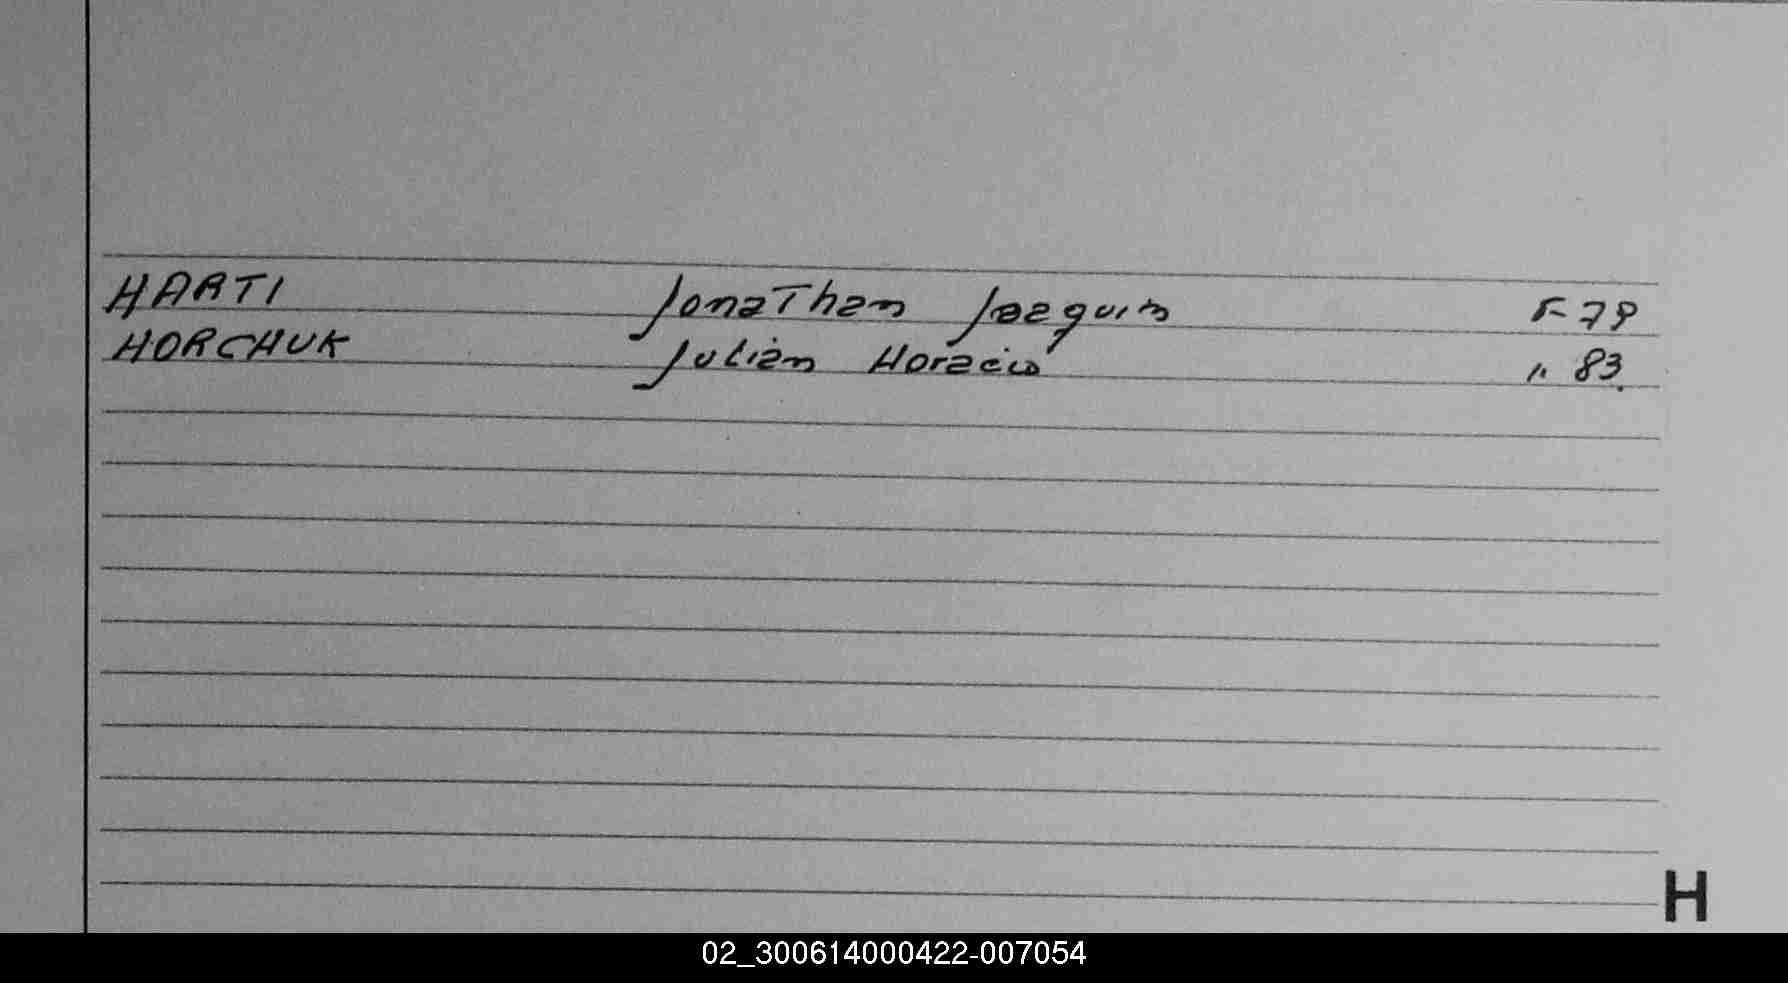 HARTI Jonathan Joaquin F-79
HORCHUK Julián Horacio " 83.
H
02_300614000422-007054